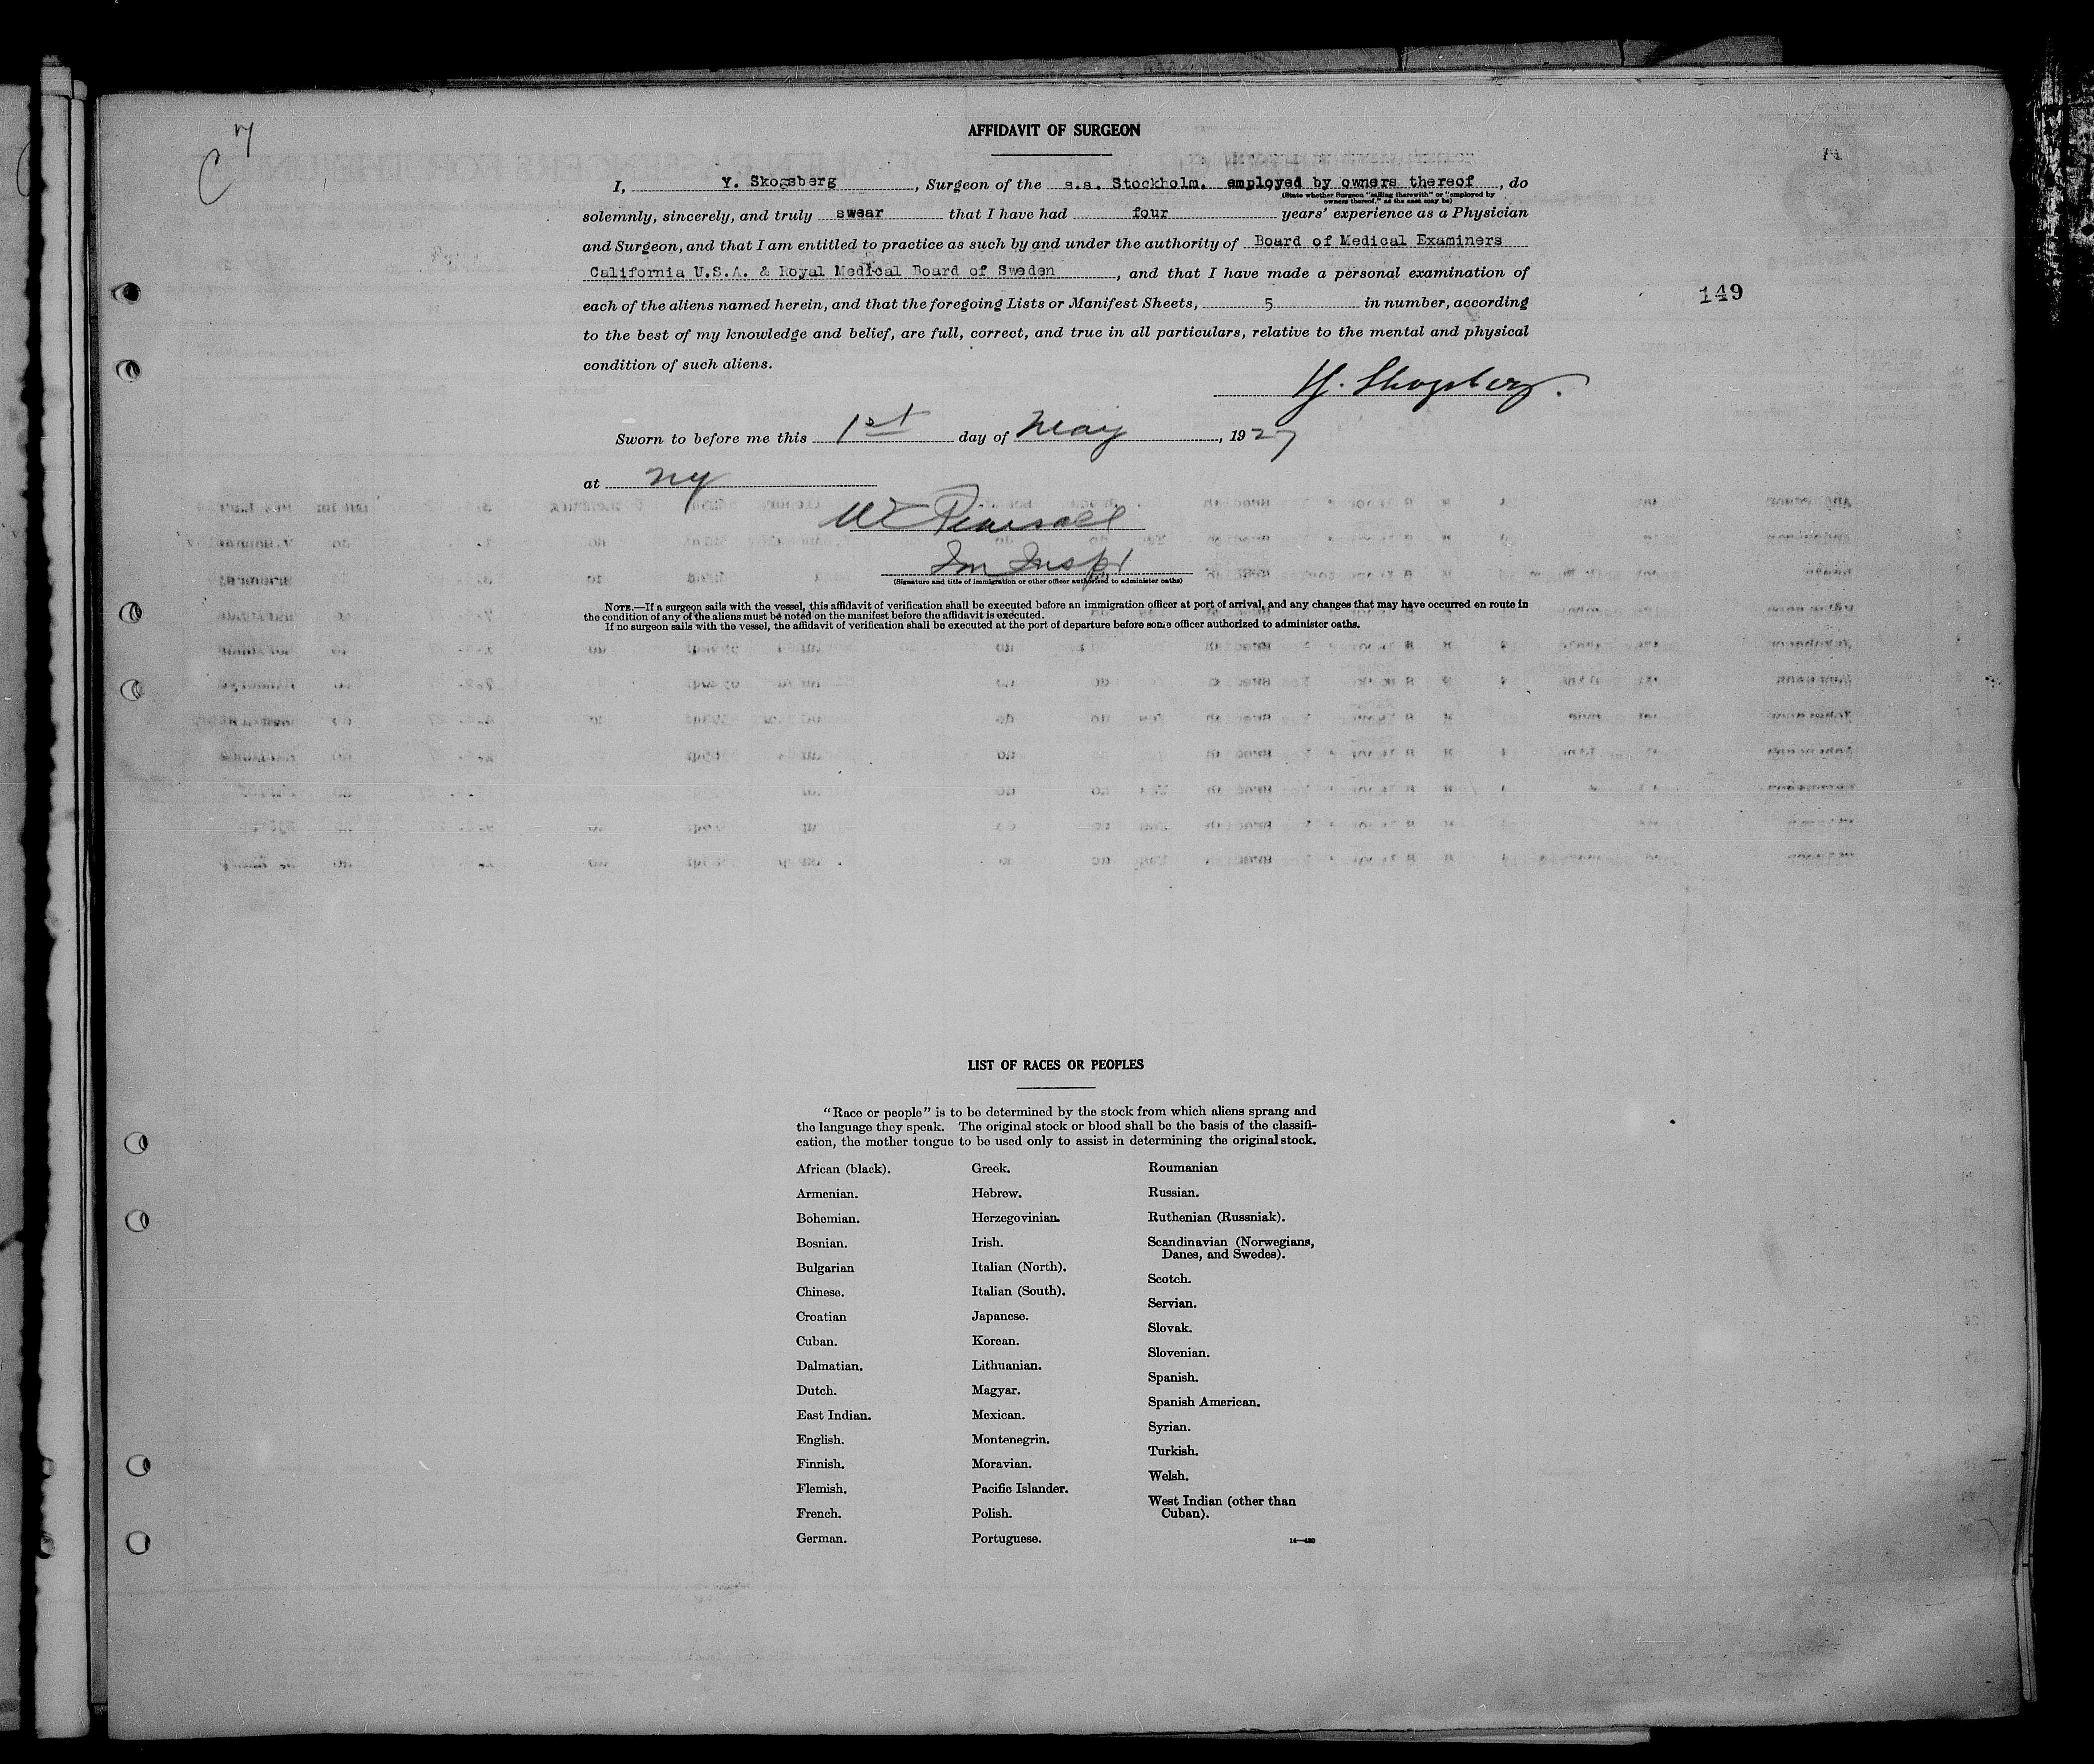 C 7
AFFIDAVIT OF SURGEON
I, Y. Skogsberg, Surgeon of the s.s. Stockholm. employed by owners thereof, do
(State whether Surgeon "sailing therewith" or "employed by
owners thereof," as the case may be)
solemnly, sincerely, and truly swear that I have had four years' experience as a Physician
and Surgeon, and that I am entitled to practice as such by and under the authority of Board of Medical Examiners
California U.S.A. & Royal Medical Board of Sweden, and that I have made a personal examination of
each of the aliens named herein, and that the foregoing Lists or Manifest Sheets, 5 in number, according
149
to the best of my knowledge and belief, are full, correct, and true in all particulars, relative to the mental and physical
condition of such aliens.
Y. Skogsberg.
Sworn to before me this 1st day of May, 1927
at NY
Pearsall
Im Inspr
(Signature and title of immigration or other officer authorized to administer oaths)
NOTE.—If a surgeon sails with the vessel, this affidavit of verification shall be executed before an immigration officer at port of arrival, and any changes that may have occurred en route in
the condition of any of the aliens must be noted on the manifest before the affidavit is executed.
If no surgeon sails with the vessel, the affidavit of verification shall be executed at the port of departure before some officer authorized to administer oaths.
LIST OF RACES OR PEOPLES
"Race or people" is to be determined by the stock from which aliens sprang and
the language they speak. The original stock or blood shall be the basis of the classifi-
cation, the mother tongue to be used only to assist in determining the original stock.
African (black).
Armenian.
Bohemian.
Bosnian.
Bulgarian
Chinese.
Croatian
Cuban.
Dalmatian.
Dutch.
East Indian.
English.
Finnish.
Flemish.
French.
German.
Greek.
Hebrew.
Herzegovinian.
Irish.
Italian (North).
Italian (South).
Japanese.
Korean.
Lithuanian.
Magyar.
Mexican.
Montenegrin.
Moravian.
Pacific Islander.
Polish.
Portuguese.
Roumanian
Russian.
Ruthenian (Russniak).
Scandinavian (Norwegians,
Danes, and Swedes).
Scotch.
Servian.
Slovak.
Slovenian.
Spanish.
Spanish American.
Syrian.
Turkish.
Welsh.
West Indian (other than
Cuban).